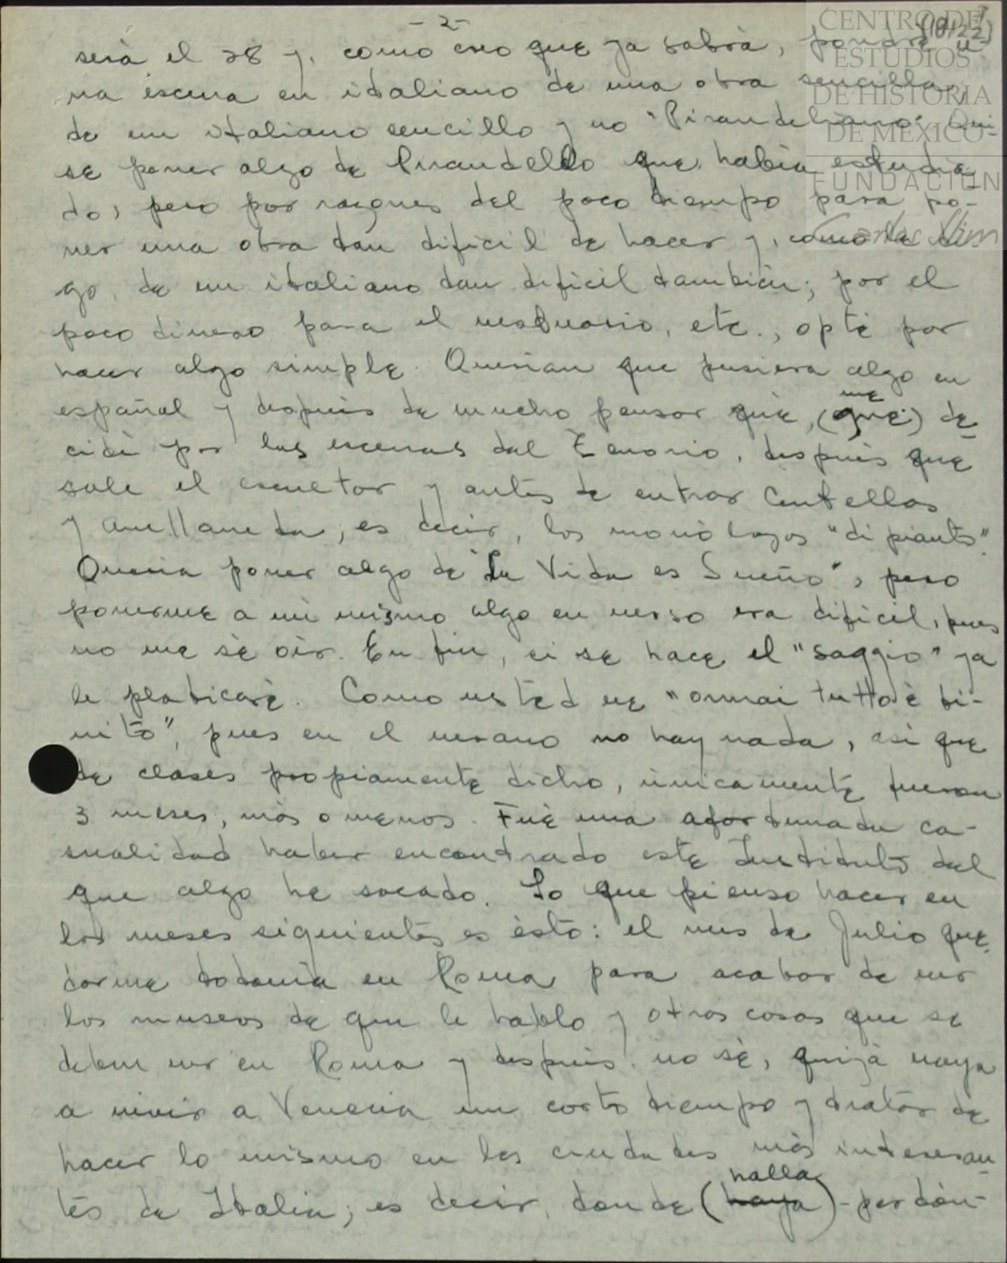 - 2 -
CENTRO DE
ESTUDIOS
DE HISTORIA
DE MEXICO
FUNDACIÓN
Carlos Slim
será el 28 y, como creo que ya sabrá, pondré u-
na escena en italiano de una obra sencilla,
de un italiano sencillo y no "Pirandeliano". Qui-
se poner algo de Pirandello que había estudia-
do, pero por razones del poco tiempo para po-
ner una obra tan difícil de hacer y, como le di-
go, de un italiano tan difícil también; por el
poco dinero para el vestuario, etc., opté por
hacer algo simple. Querían que pusiera algo en
español y después de mucho pensar qué, (que) me de-
cidí por las escenas del Tenorio, después que
sale el escultor y antes de entrar Centellas
y Avellaneda, es decir, los monólogos "di pianto".
Quería poner algo de "La Vida es Sueño", pero
ponerme a mí mismo algo en verso era difícil, pues
no me sé oír. En fin, si se hace el "saggio" ya
le platicaré. Como usted ve "ormai tutto è fi-
nito", pues en el verano no hay nada, así que
de clases propiamente dicho, únicamente fueron
3 meses, más o menos. Fué una afortunada ca-
sualidad haber encontrado este Instituto del
que algo he sacado. Lo que pienso hacer en
los meses siguientes es ésto: el mes de Julio que-
darme todavía en Roma para acabar de ver
los museos de que le hablo y otras cosas que se
deben ver en Roma y después, no sé, quizá vaya
a vivir a Venecia un corto tiempo y tratar de
hacer lo mismo en las ciudades más interesan-
tes de Italia; es decir, donde (haya) halla - perdón-